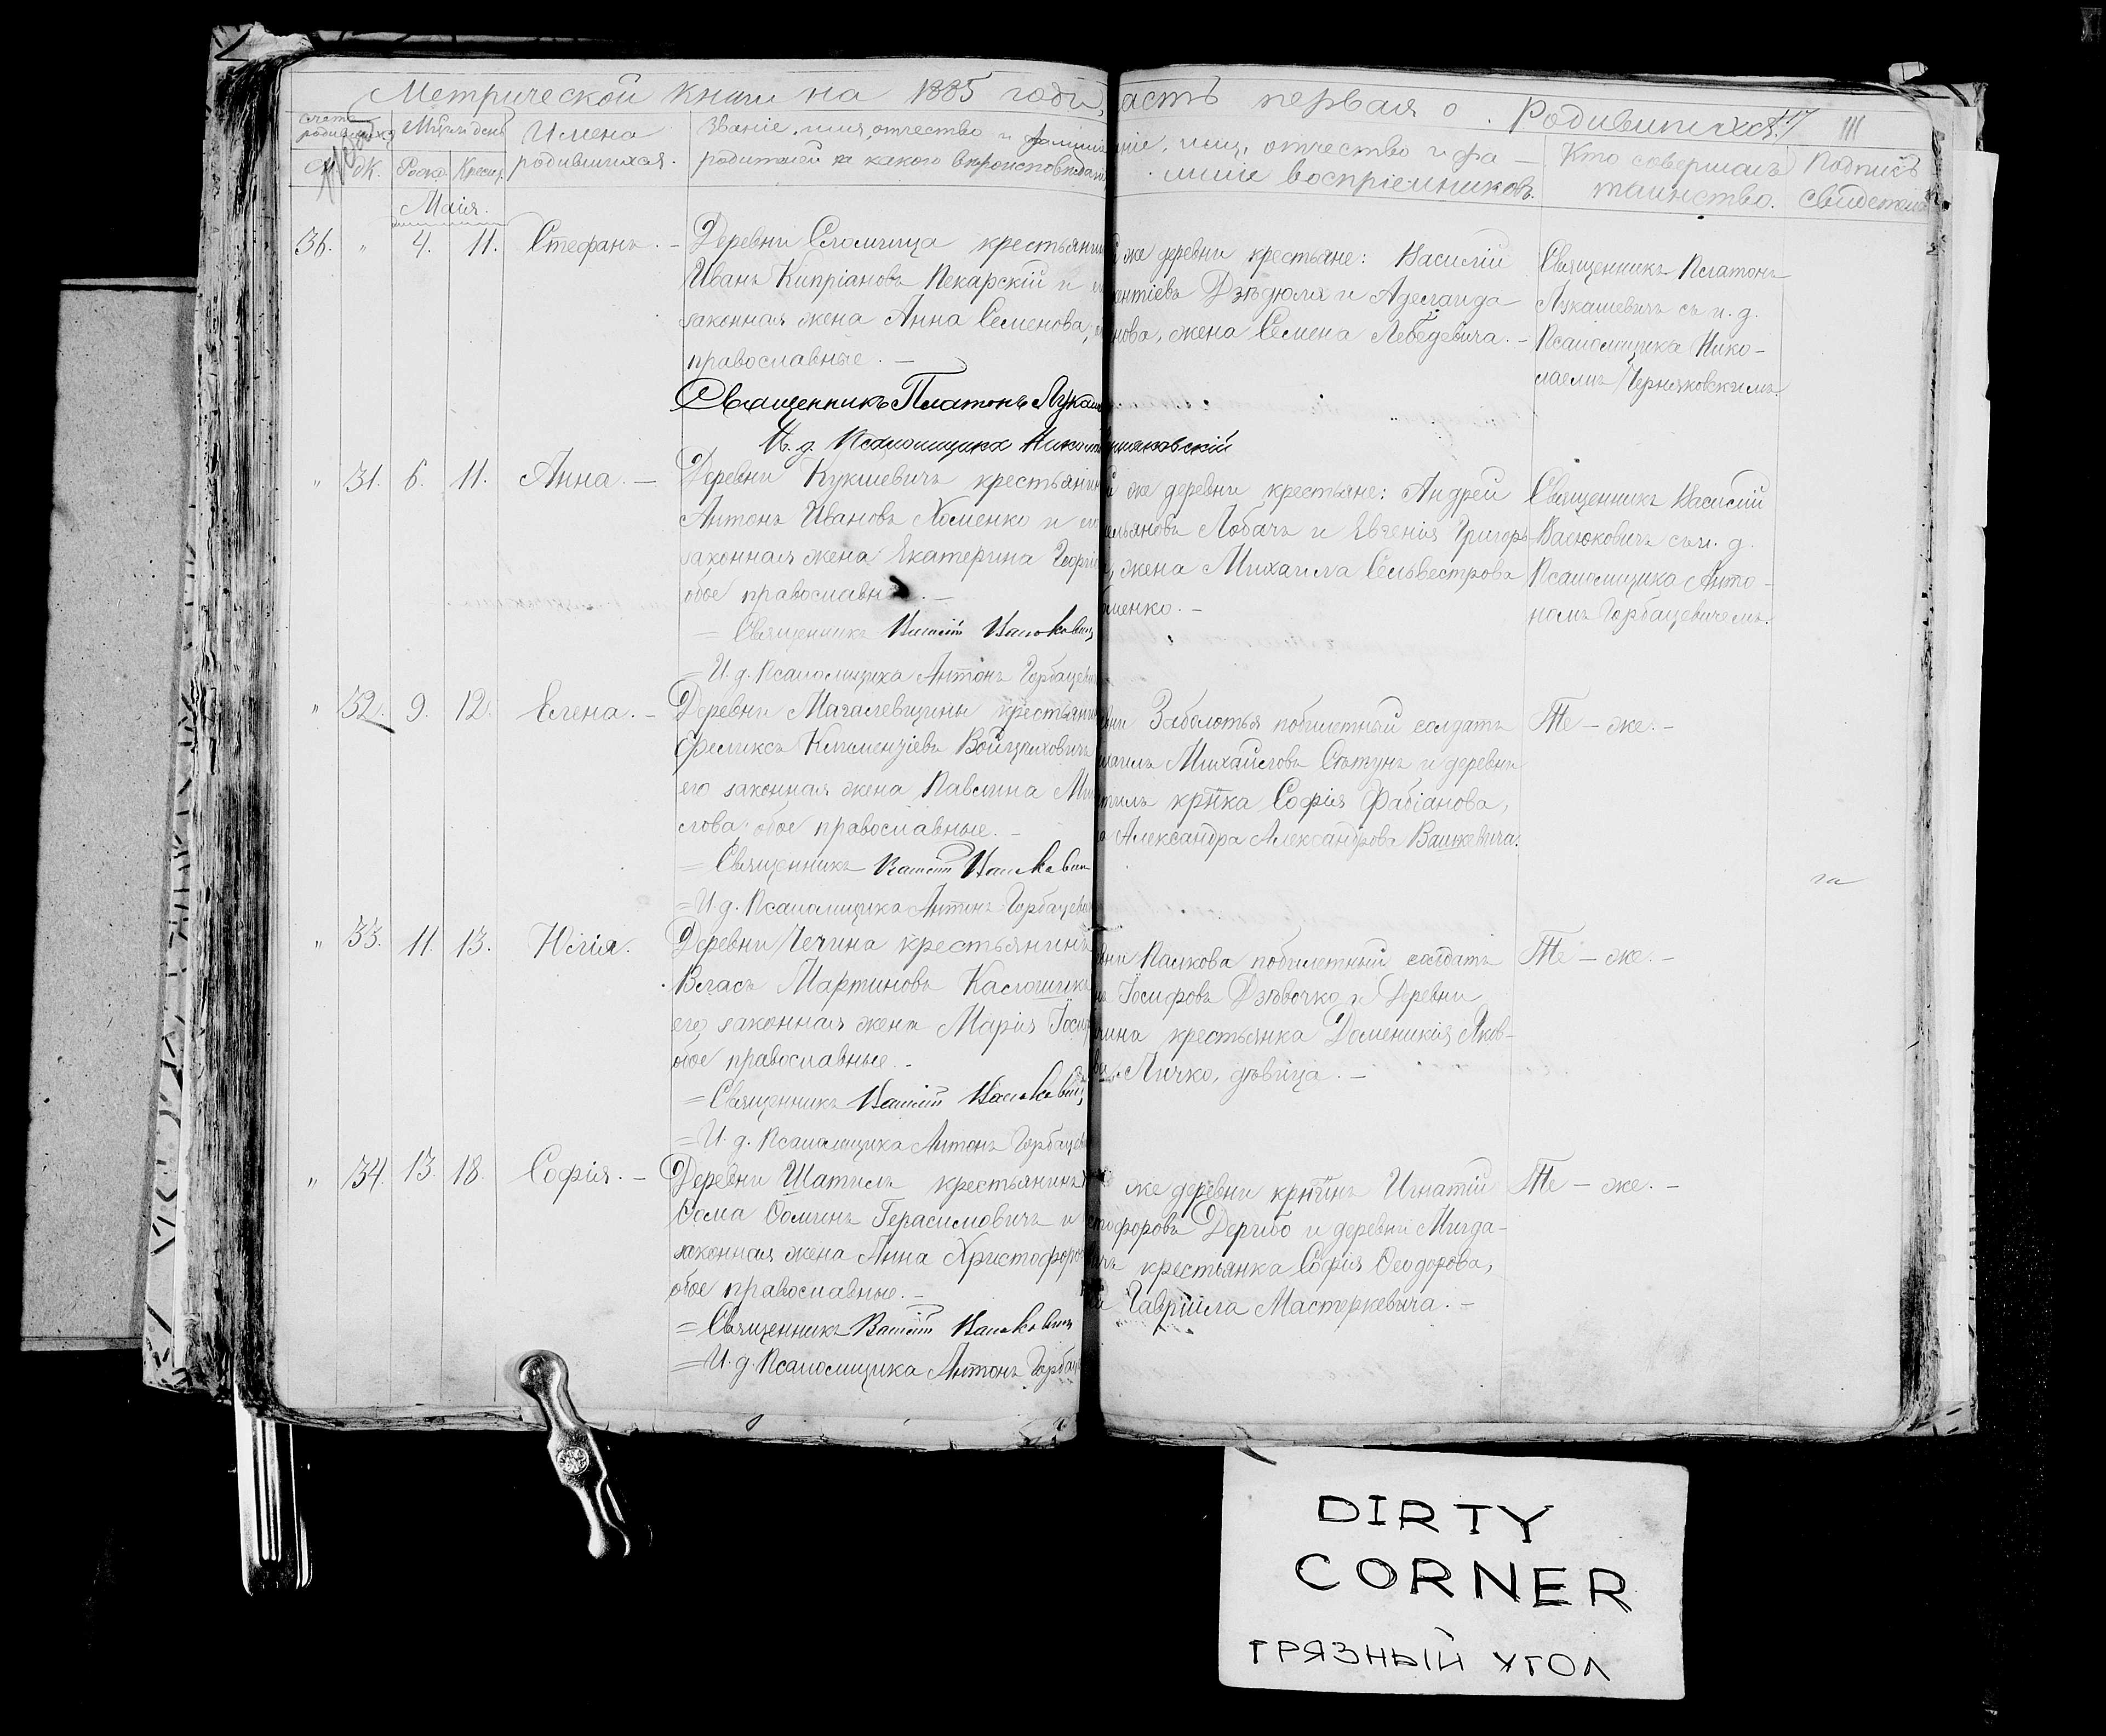 Метрической книги на 1885 годъ, асть первая о Родившихся. 117 III
счетъ родившихся Мѣсяцъ и день Имена родившихся. Званіе, имя, отчество и фамил
родителей и какого вѣроисповѣдан
ніе, имя, отчество и фа-
миліе воспріемниковъ.
Кто совершалъ таинство.
Подпись свидѣтел
М. Ж. Рожд. Крещ.
Маія.
36. " 4. 11. Стефанъ. -
Деревни крестьянин
Иванъ Кипріановъ Пекарскій и
законная жена Анна Семенова,
православные. -
Священникъ Платонъ Лука
И. д. Псаломщика Никол няковскій
же деревни крестьяне: Василій
ентіевъ Дзѣдюля и Аделаида
нова, жена Семена Лебедевича. -
Священникъ Платонъ
Лукашевичъ съ и. д.
Псаломщика Нико-
лаемъ Черняковскимъ
" 31. 6. 11. Анна. -
Деревни Кукшевичъ крестьянин
Антонъ Ивановъ Хоменко и его
законная жена Екатерина Георгі
обое православн . -
= Священникъ Василій Васюкович
= И. д. Псаломщика Антонъ Горбацеви
же деревни крестьяне: Андрей
ельяновъ Лобачъ и Евгенія Григорь
, жена Михаила Сельвестрова
менко. -
Священникъ Василій
Васюковичъ съ и. д.
Псаломщика Анто-
номъ Горбацевичемъ.
" 32. 9. 12. Елена. -
Деревни Магалевщины крестьянин
Феликсъ Климентіевъ Войцѣховичъ
его законная жена Павлина Ми
лова, обое православные. -
= Священникъ Василій Васюкович
= И. д. Псаломщика Антонъ Горбацеви
вни Заболотья побилетный солдатъ
хаилъ Михайловъ Сѣтунъ и деревни
тилъ крѣнка Софія Фабіанова,
Александра Александрова Вашкевича.
Тѣ - же. -
" 33. 11. 13. Юлія.
Деревни Чечина крестьянинъ
Власъ Мартиновъ Каслошик
его законная жена Марія Іоси
обое православные. -
= Священникъ Василій Васюкович
= И. д. Псаломщика Антонъ Горбацев
вни Паликова побилетный солдатъ
Іосифовъ Дзѣвочко и Деревни
чина крестьянка Доменикія Яков-
ва Личко, дѣвица. -
Тѣ - же. -
" 34. 13. 18. Софія. -
Деревни Шатилъ крестьянинъ
Ѳома Ѳоминъ Герасимовичъ и
законная жена Анна Христофоро
обое православные. -
= Священникъ Василій Васюкович
= И. д. Псаломщика Антонъ Горбац
же деревни крѣнинъ Игнатій
тофоровъ Дерибо и деревни Мигда-
ичъ крестьянка Софія Ѳеодорова,
Гавріила Мастеркевича. -
Тѣ - же. -
DIRTY
CORNER
ГРЯЗНЫЙ УГОЛ